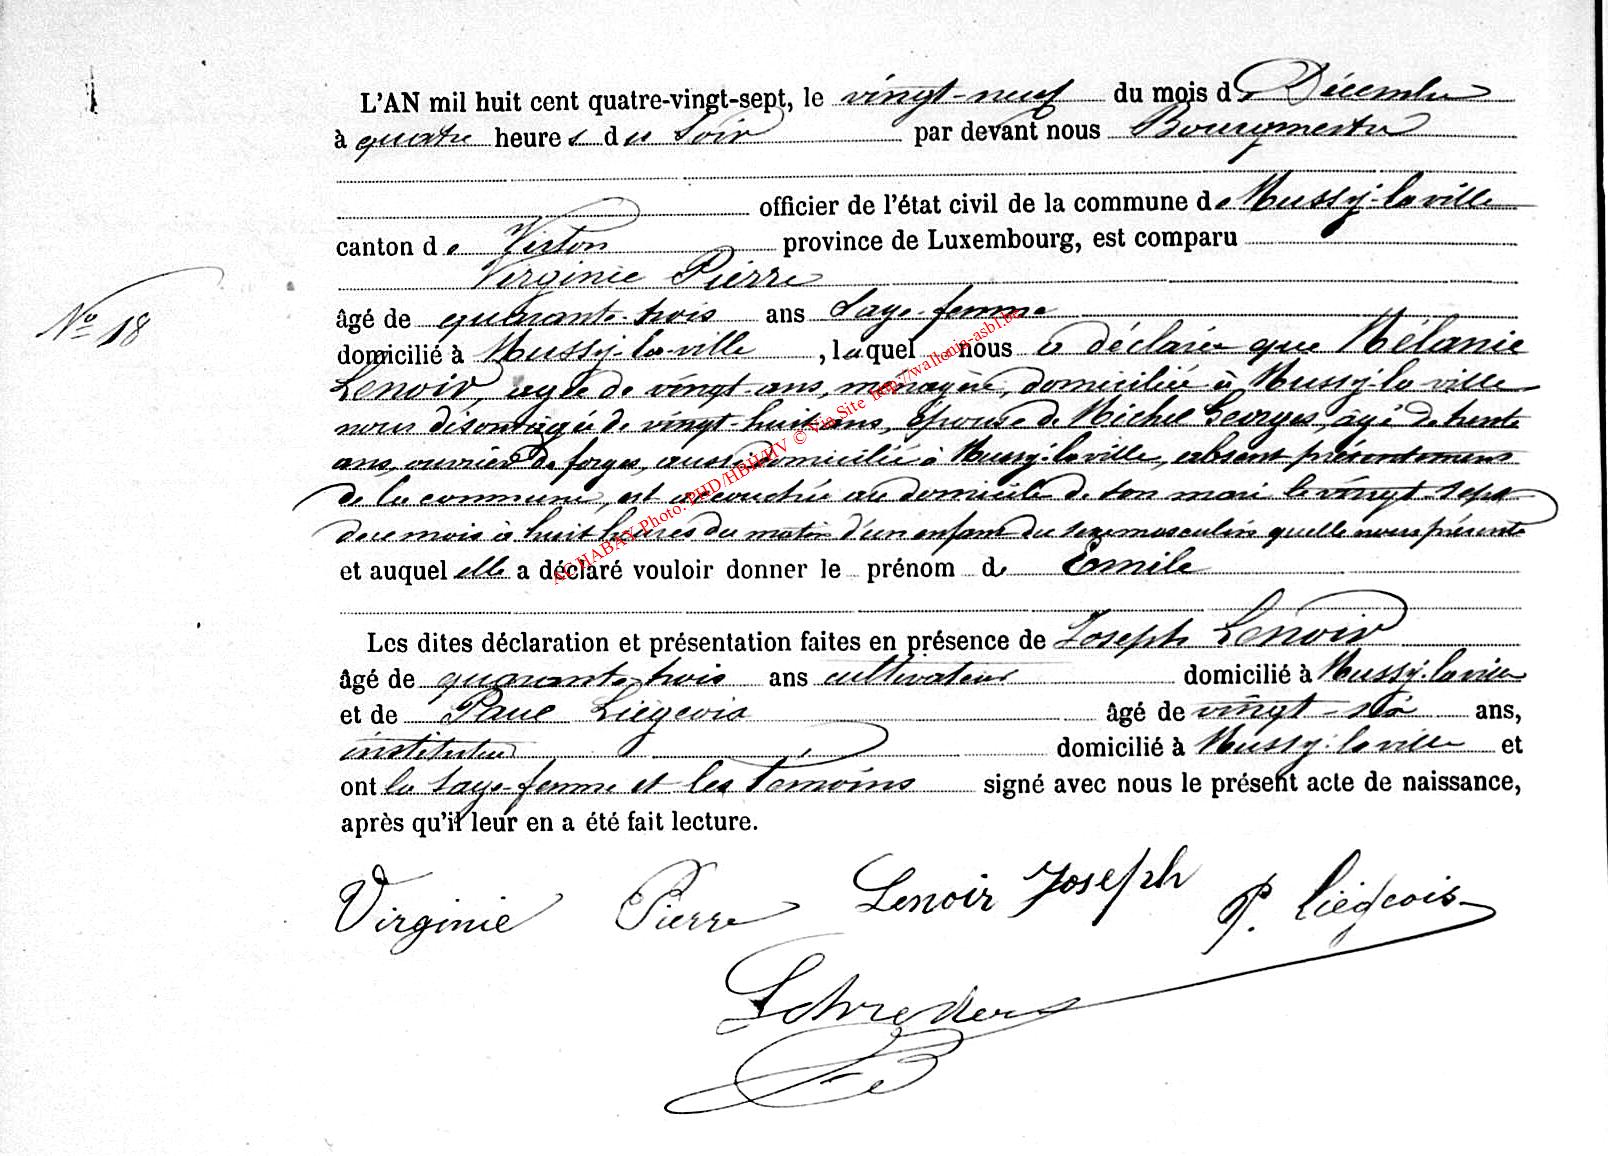 L'AN mil huit cent quatre-vingt-sept, le vingt-neuf du mois de Décembre
à quatre heures du soir par devant nous Bourgmestre
officier de l'état civil de la commune de Mussy-la-ville
canton de Virton province de Luxembourg, est comparu
Virginie Pierre
N° 18
âgé de quarante-trois ans Sage-femme
domicilié à Mussy-la-ville, laquelle nous a déclaré que Mélanie
Lenoir, agée de vingt ans, ménagère, domiciliée à Mussy-la ville
nous disons agée de vingt-huit ans, épouse de Michel Georges, agé de trente
ans, ouvrier de forges, aussi domicilié à Mussy-la ville, absent présentement
de la commune, est accouchée au domicile de son mari le vingt-sept
de ce mois à huit heures du matin d'un enfant du sexe masculin qu'elle nous présente
et auquel elle a déclaré vouloir donner le prénom de Emile
Les dites déclaration et présentation faites en présence de Joseph Lenoir
âgé de quarante-trois ans cultivateur domicilié à Mussy-la ville
et de Paul Liégeois âgé de vingt-six ans,
instituteur domicilié à Mussy-la ville et
ont la sage-femme et les témoins signé avec nous le présent acte de naissance,
après qu'il leur en a été fait lecture.
Virginie Pierre Lenoir Joseph P. Liégeois
ACHABAY Photo: PHD/HBH/HV © Via Site http://wallonia-asbl.be